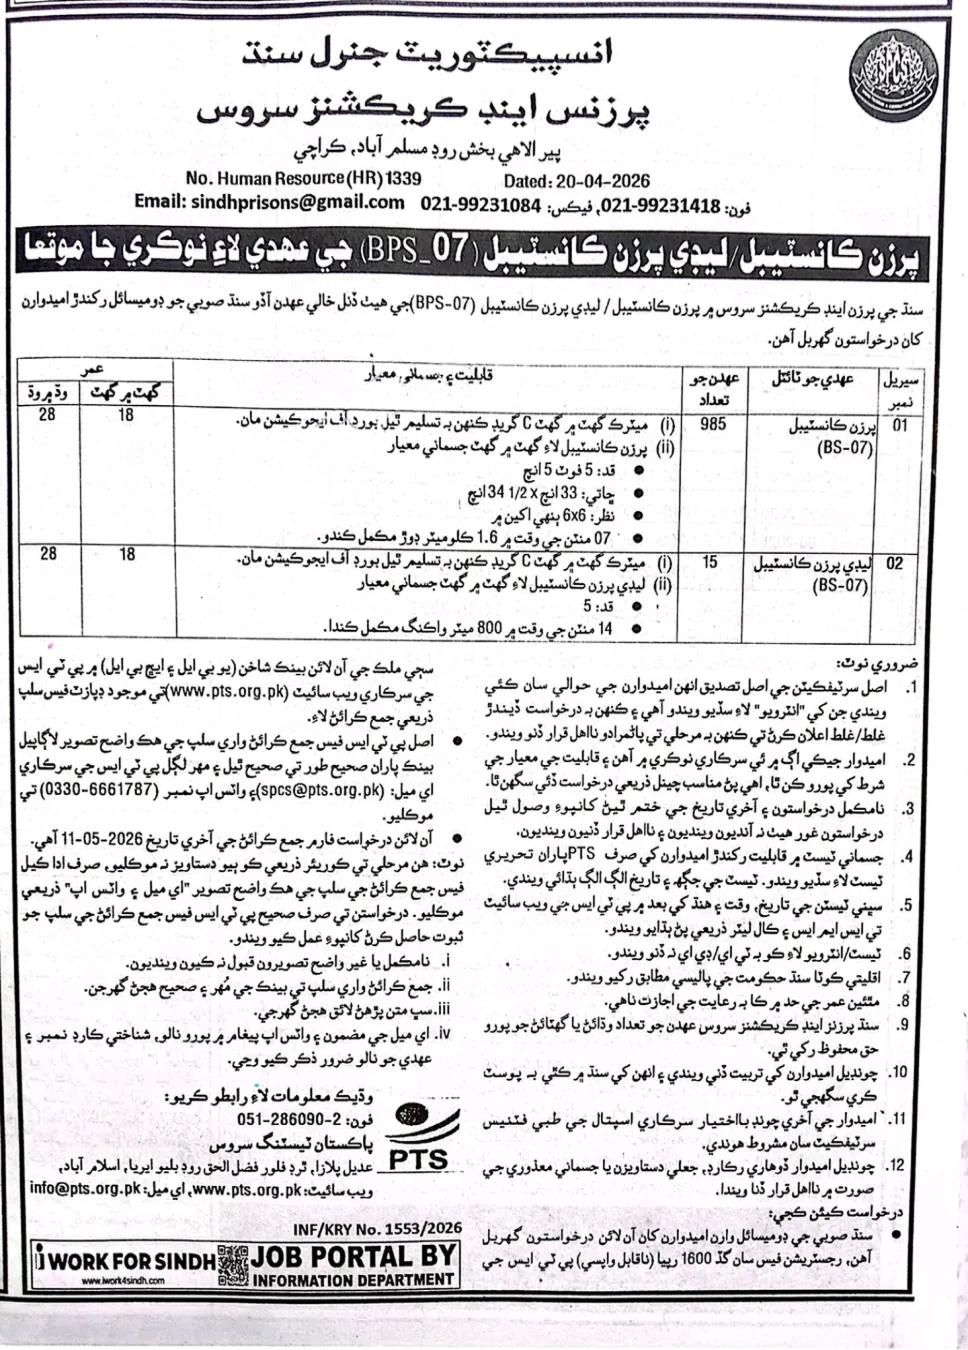 انسپيڪٽوريٽ جنرل سنڌ
پرزنس اينڊ ڪريڪشنز سروس
پير الاهي بخش روڊ مسلم آباد، ڪراچي
No. Human Resource (HR) 1339 Dated: 20-04-2026
فون: 021-99231418، فيڪس: 021-99231084 Email: sindhprisons@gmail.com
پرزن ڪانسٽيبل/ليڊي پرزن ڪانسٽيبل (BPS_07) جي عهدي لاءِ نوڪري جا موقعا
سنڌ جي پرزن اينڊ ڪريڪشنز سروس ۾ پرزن ڪانسٽيبل/ ليڊي پرزن ڪانسٽيبل (BPS-07)جي هيٺ ڏنل خالي عهدن آڏو سنڌ صوبي جو ڊوميسائل رکندڙ اميدوارن
کان درخواستون گهربل آهن.
سيريل نمبر
عهدي جو ٽائٽل
عهدن جو تعداد
قابليت ۽ جسماني معيار
عمر
گهٽ ۾ گهٽ
وڌ ۾ وڌ
01
پرزن ڪانسٽيبل
(BS-07)
985
(i) ميٽرڪ گهٽ ۾ گهٽ C گريڊ ڪنهن به تسليم ٿيل بورڊ آف ايجوڪيشن مان.
(ii) پرزن ڪانسٽيبل لاءِ گهٽ ۾ گهٽ جسماني معيار
● قد: 5 فوٽ 5 انچ
● ڇاتي: 33 انچ x 34 1/2 انچ
● نظر: 6x6 ٻنهي اکين ۾
● 07 منٽن جي وقت ۾ 1.6 ڪلوميٽر ڊوڙ مڪمل ڪندو.
18
28
02
ليڊي پرزن ڪانسٽيبل
(BS-07)
15
(i) ميٽرڪ گهٽ ۾ گهٽ C گريڊ ڪنهن به تسليم ٿيل بورڊ آف ايجوڪيشن مان.
(ii) ليڊي پرزن ڪانسٽيبل لاءِ گهٽ ۾ گهٽ جسماني معيار
● قد: 5
● 14 منٽن جي وقت ۾ 800 ميٽر واڪنگ مڪمل ڪندا.
18
28
ضروري نوٽ:
1. اصل سرٽيفڪيٽن جي اصل تصديق انهن اميدوارن جي حوالي سان ڪئي
ويندي جن کي "انٽرويو" لاءِ سڏيو ويندو آهي ۽ ڪنهن به درخواست ڏيندڙ
غلط/غلط اعلان ڪرڻ تي ڪنهن به مرحلي تي پاڻمرادو نااهل قرار ڏنو ويندو.
2. اميدوار جيڪي اڳ ۾ ئي سرڪاري نوڪري ۾ آهن ۽ قابليت جي معيار جي
شرط کي پورو ڪن ٿا، اهي پڻ مناسب چينل ذريعي درخواست ڏئي سگهن ٿا.
3. نامڪمل درخواستون ۽ آخري تاريخ جي ختم ٿيڻ کانپوءِ وصول ٿيل
درخواستون غور هيٺ نه آنديون وينديون ۽ نااهل قرار ڏنيون وينديون.
4. جسماني ٽيسٽ ۾ قابليت رکندڙ اميدوارن کي صرف PTS پاران تحريري
ٽيسٽ لاءِ سڏيو ويندو. ٽيسٽ جي جڳهه ۽ تاريخ الڳ الڳ ٻڌائي ويندي.
5. سڀني ٽيسٽن جي تاريخ، وقت ۽ هنڌ کي بعد ۾ پي ٽي ايس جي ويب سائيٽ
تي ايس ايم ايس ۽ ڪال ليٽر ذريعي پڻ ٻڌايو ويندو.
6. ٽيسٽ/انٽرويو لاءِ ڪو به ٽي اي/ڊي اي نه ڏنو ويندو.
7. اقليتي ڪوٽا سنڌ حڪومت جي پاليسي مطابق رکيو ويندو.
8. مٿئين عمر جي حد ۾ ڪا به رعايت جي اجازت ناهي.
9. سنڌ پرزنز اينڊ ڪريڪشنز سروس عهدن جو تعداد وڌائڻ يا گهٽائڻ جو پورو
حق محفوظ رکي ٿي.
10. چونڊيل اميدوارن کي تربيت ڏني ويندي ۽ انهن کي سنڌ ۾ ڪٿي به پوسٽ
ڪري سگهجي ٿو.
11. اميدوار جي آخري چونڊ بااختيار سرڪاري اسپتال جي طبي فٽنيس
سرٽيفڪيٽ سان مشروط هوندي.
12. چونڊيل اميدوار ڏوهاري رڪارڊ، جعلي دستاويزن يا جسماني معذوري جي
صورت ۾ نااهل قرار ڏنا ويندا.
درخواست ڪيئن ڪجي:
● سنڌ صوبي جي ڊوميسائل وارن اميدوارن کان آن لائن درخواستون گهربل
آهن، رجسٽريشن فيس سان گڏ 1600 رپيا (ناقابل واپسي) پي ٽي ايس جي
سڄي ملڪ جي آن لائن بينڪ شاخن (يو بي ايل ۽ ايڇ بي ايل) ۾ پي ٽي ايس
جي سرڪاري ويب سائيٽ (www.pts.org.pk)تي موجود ڊپازٽ فيس سلپ
ذريعي جمع ڪرائڻ لاءِ.
● اصل پي ٽي ايس فيس جمع ڪرائڻ واري سلپ جي هڪ واضح تصوير لاڳاپيل
بينڪ پاران صحيح طور تي صحيح ٿيل ۽ مهر لڳل پي ٽي ايس جي سرڪاري
اي ميل: (spcs@pts.org.pk)۽ واٽس اپ نمبر (0330-6661787) تي
موڪليو.
● آن لائن درخواست فارم جمع ڪرائڻ جي آخري تاريخ 2026-05-11 آهي.
نوٽ: هن مرحلي تي ڪوريئر ذريعي ڪو ٻيو دستاويز نه موڪليو، صرف ادا ڪيل
فيس جمع ڪرائڻ جي سلپ جي هڪ واضح تصوير "اي ميل ۽ واٽس اپ" ذريعي
موڪليو. درخواستن تي صرف صحيح پي ٽي ايس فيس جمع ڪرائڻ جي سلپ جو
ثبوت حاصل ڪرڻ کانپوءِ عمل ڪيو ويندو.
i. نامڪمل يا غير واضح تصويرون قبول نه ڪيون وينديون.
ii. جمع ڪرائڻ واري سلپ تي بينڪ جي مُهر ۽ صحيح هجڻ گهرجن.
iii. سڀ متن پڙهڻ لائق هجڻ گهرجي.
iv. اي ميل جي مضمون ۽ واٽس اپ پيغام ۾ پورو نالو، شناختي ڪارڊ نمبر ۽
عهدي جو نالو ضرور ذڪر ڪيو وڃي.
وڌيڪ معلومات لاءِ رابطو ڪريو:
فون: 051-286090-2
پاڪستان ٽيسٽنگ سروس
عديل پلازا، ٿرڊ فلور فضل الحق روڊ بليو ايريا، اسلام آباد،
ويب سائيٽ: www.pts.org.pk، اي ميل: info@pts.org.pk
PTS
INF/KRY No. 1553/2026
i WORK FOR SINDH
www.iwork4sindh.com
JOB PORTAL BY
INFORMATION DEPARTMENT